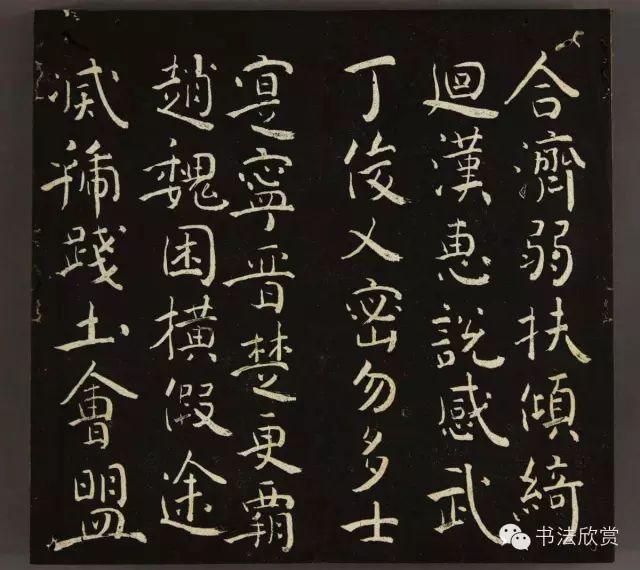 合濟弱扶傾綺
迴漢惠說感武
丁俊乂密勿多士
寔寧晉楚更霸
趙魏困橫假途
滅虢踐土會盟
书法欣赏